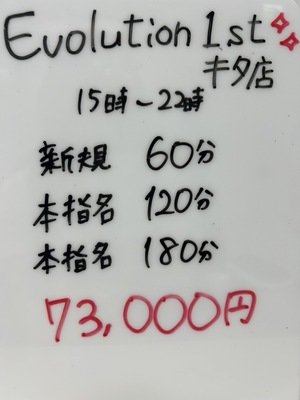 Evolution 1st
キタ店
15時〜22時
新規 60分
本指名 120分
本指名 180分
73,000円